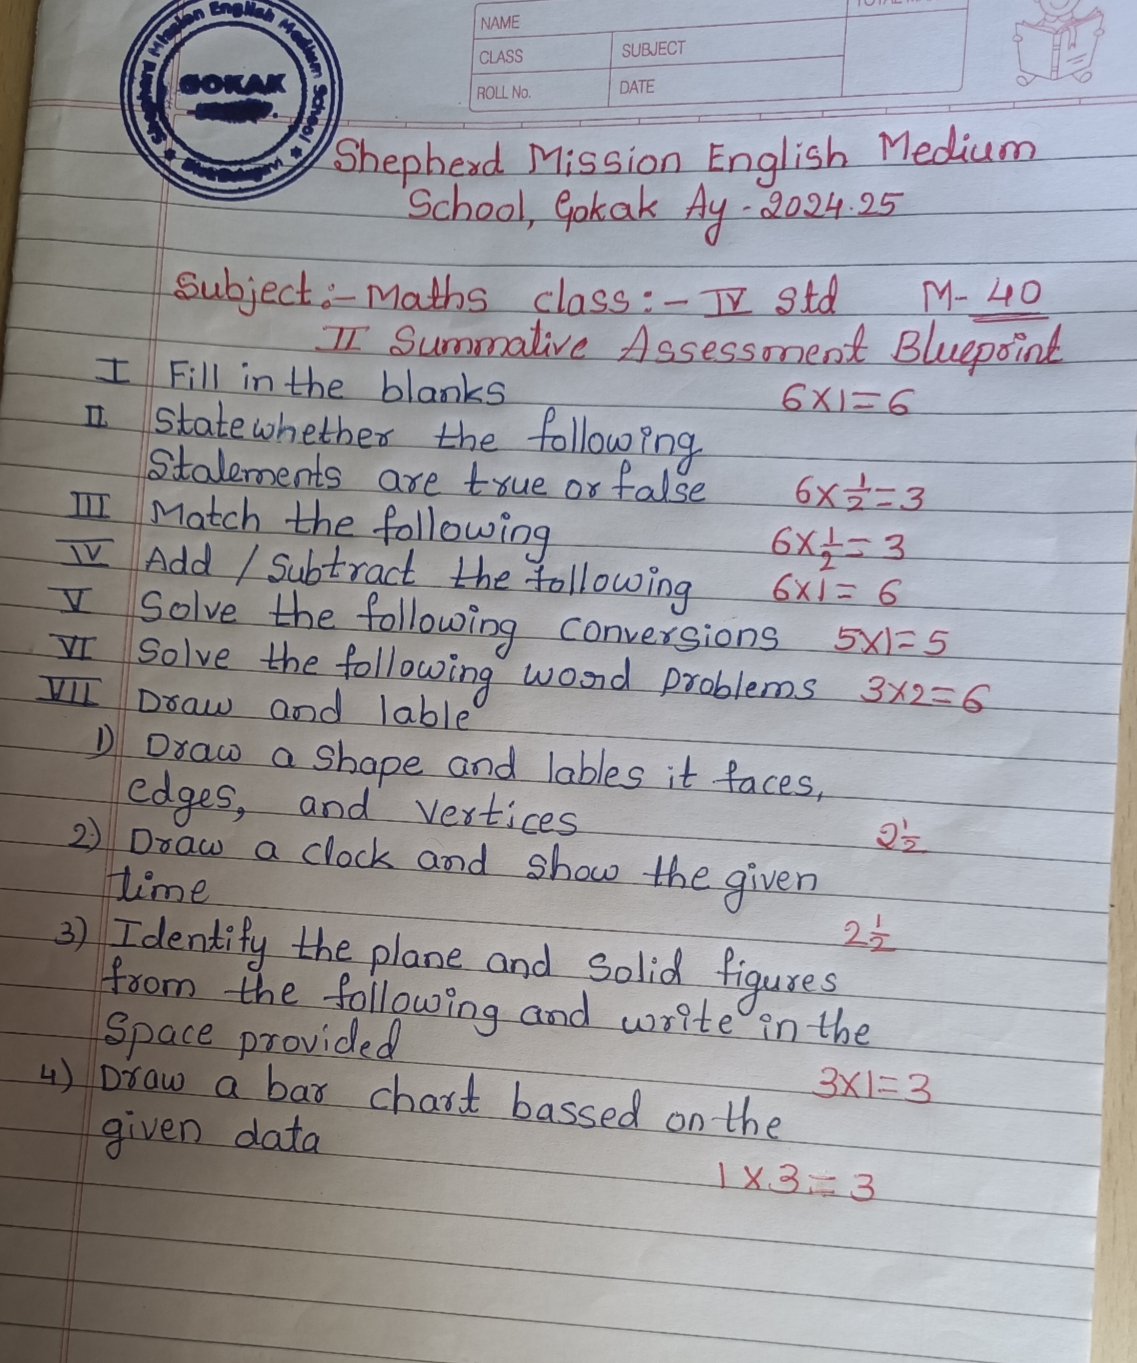 Shepherd Mission English Medium School
GOKAK
NAME
CLASS
SUBJECT
ROLL No.
DATE
Shepherd Mission English Medium
School, Gokak Ay-2024.25
Subject:- Maths class:- IV Std M- 40
II Summative Assessment Blueprint
I Fill in the blanks 6x1=6
II State whether the following
Statements are true or false 6x1/2=3
III Match the following 6x1/2=3
IV Add / Subtract the following 6x1=6
V Solve the following conversions 5x1=5
VI Solve the following word problems 3x2=6
VII Draw and lable
1) Draw a shape and lables it faces,
edges, and vertices 2 1/2
2) Draw a clock and show the given
time 2 1/2
3) Identify the plane and solid figures
from the following and write in the
Space provided 3x1=3
4) Draw a bar chart bassed on the
given data 1x3=3